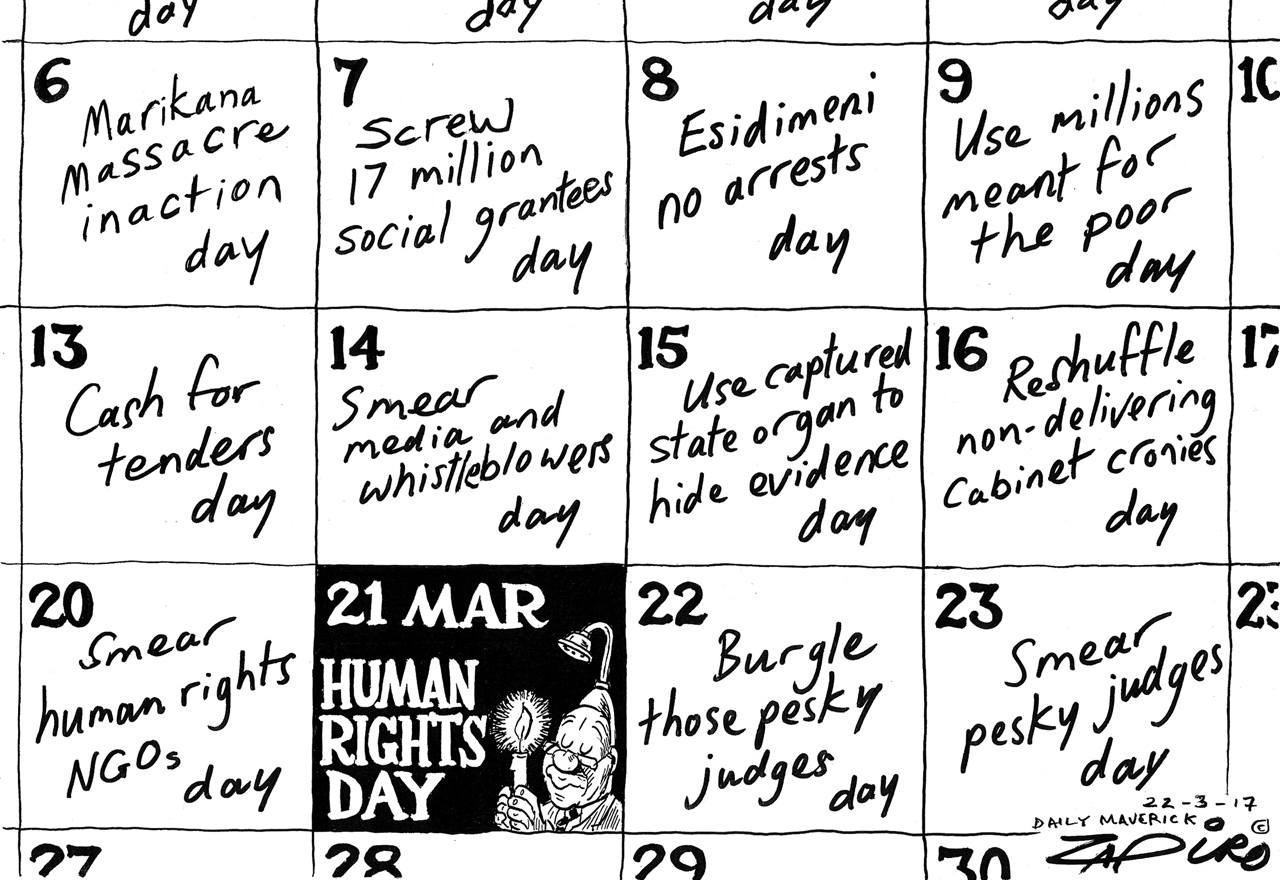 day
day
day
day
6
Marikana
Massacre
inaction
day
7
Screw
17 million
social grantees
day
8
Esidimeni
no arrests
day
9
Use millions
meant for
the poor
day
10
13
Cash for
tenders
day
14
Smear
media and
whistleblowers
day
15
Use captured
state organ to
hide evidence
day
16
Reshuffle
non-delivering
Cabinet cronies
day
17
20
Smear
human rights
NGOs
day
21 MAR
HUMAN
RIGHTS
DAY
22
Burgle
those pesky
judges
day
23
Smear
pesky judges
day
23
22-3-17
DAILY MAVERICK ©
ZAPIRO
27
28
29
30